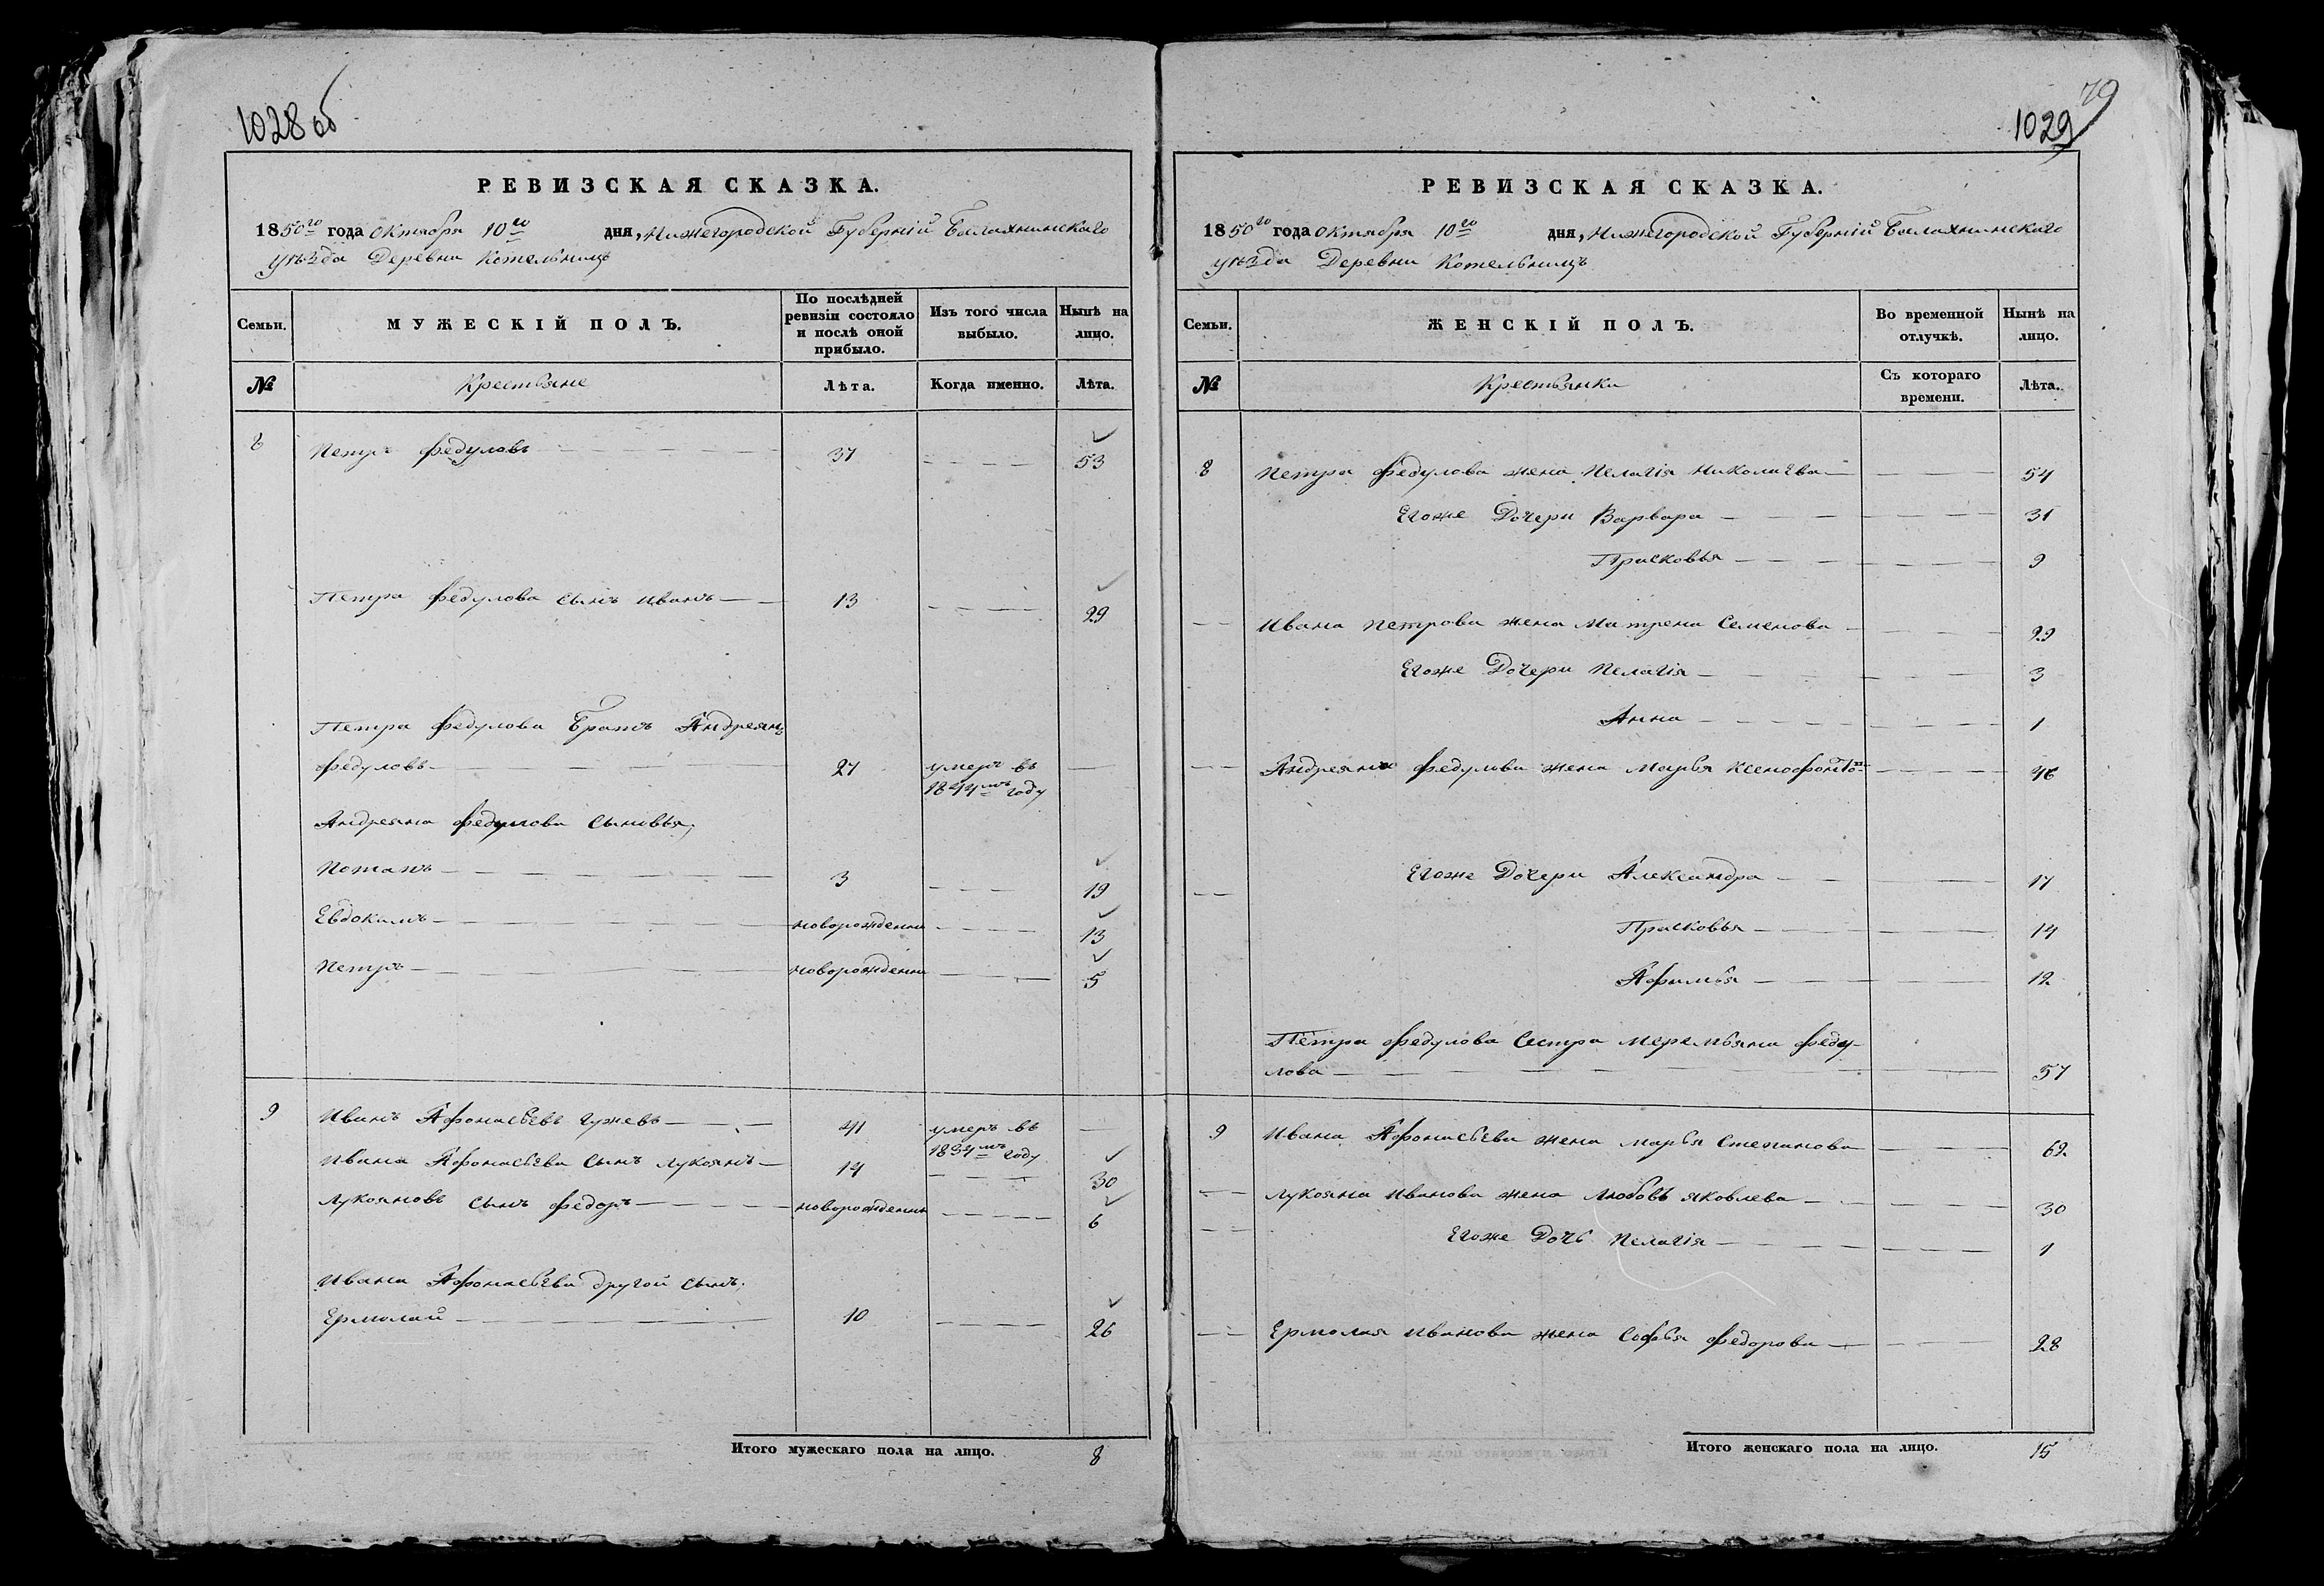 1028 об
РЕВИЗСКАЯ СКАЗКА.
1850го года Октября 10го дня, Нижегородской Губерніи Балахнинскаго
уѣзда Деревни Котельницъ
Семьи. МУЖЕСКІЙ ПОЛЪ. По послѣдней ревизіи состояло и послѣ оной прибыло. Изъ того числа выбыло. Нынѣ на лицо.
№ Крестьяне Лѣта. Когда именно. Лѣта.
8 Петръ Федуловъ 37 53
Петра Федулова сынъ Иванъ 13 29
Петра Федулова Братъ Андреянъ
Федуловъ 27 умеръ въ 1844мъ году
Андреяна Федулова сыновья,
Потапъ 3 19
Евдокимъ новорожденны 13
Петръ новорожденны 5
9 Иванъ Афонасьевъ Гужевъ 41 умеръ въ 1834мъ году
Ивана Афонасьева сынъ Лукоянъ 14 30
Лукояновъ сынъ Федоръ новорожденны 6
Ивана Афонасьева другой сынъ.
Ермолай 10 26
Итого мужескаго пола на лицо. 8
79
1029
РЕВИЗСКАЯ СКАЗКА.
1850го года Октября 10го дня, Нижегородской Губерніи Балахнинскаго
уѣзда Деревни Котельницъ
Семьи. ЖЕНСКІЙ ПОЛЪ. Во временной отлучкѣ. Нынѣ на лицо.
№ Крестьянки Съ котораго времени. Лѣта.
8 Петра Федулова жена Пелагія Николаева 54
Егоже Дочери Варвара 31
Прасковья 9
Ивана Петрова жена Матрена Семенова 29
Егоже Дочери Пелагія 3
Анна 1
Андреяна Федулова жена Марья Ксенофонто 46
Егоже Дочери Александра 17
Прасковья 14
Афимья 12
Петра Федулова Сестра Меремьяна Феду-
лова 57
9 Ивана Афонасьева жена Марья Степанова 62
Лукояна Иванова жена Любовь Яковлева 30
Егоже Дочь Пелагія 1
Ермолая Иванова жена Софья Федорова 28
Итого женскаго пола на лицо. 15